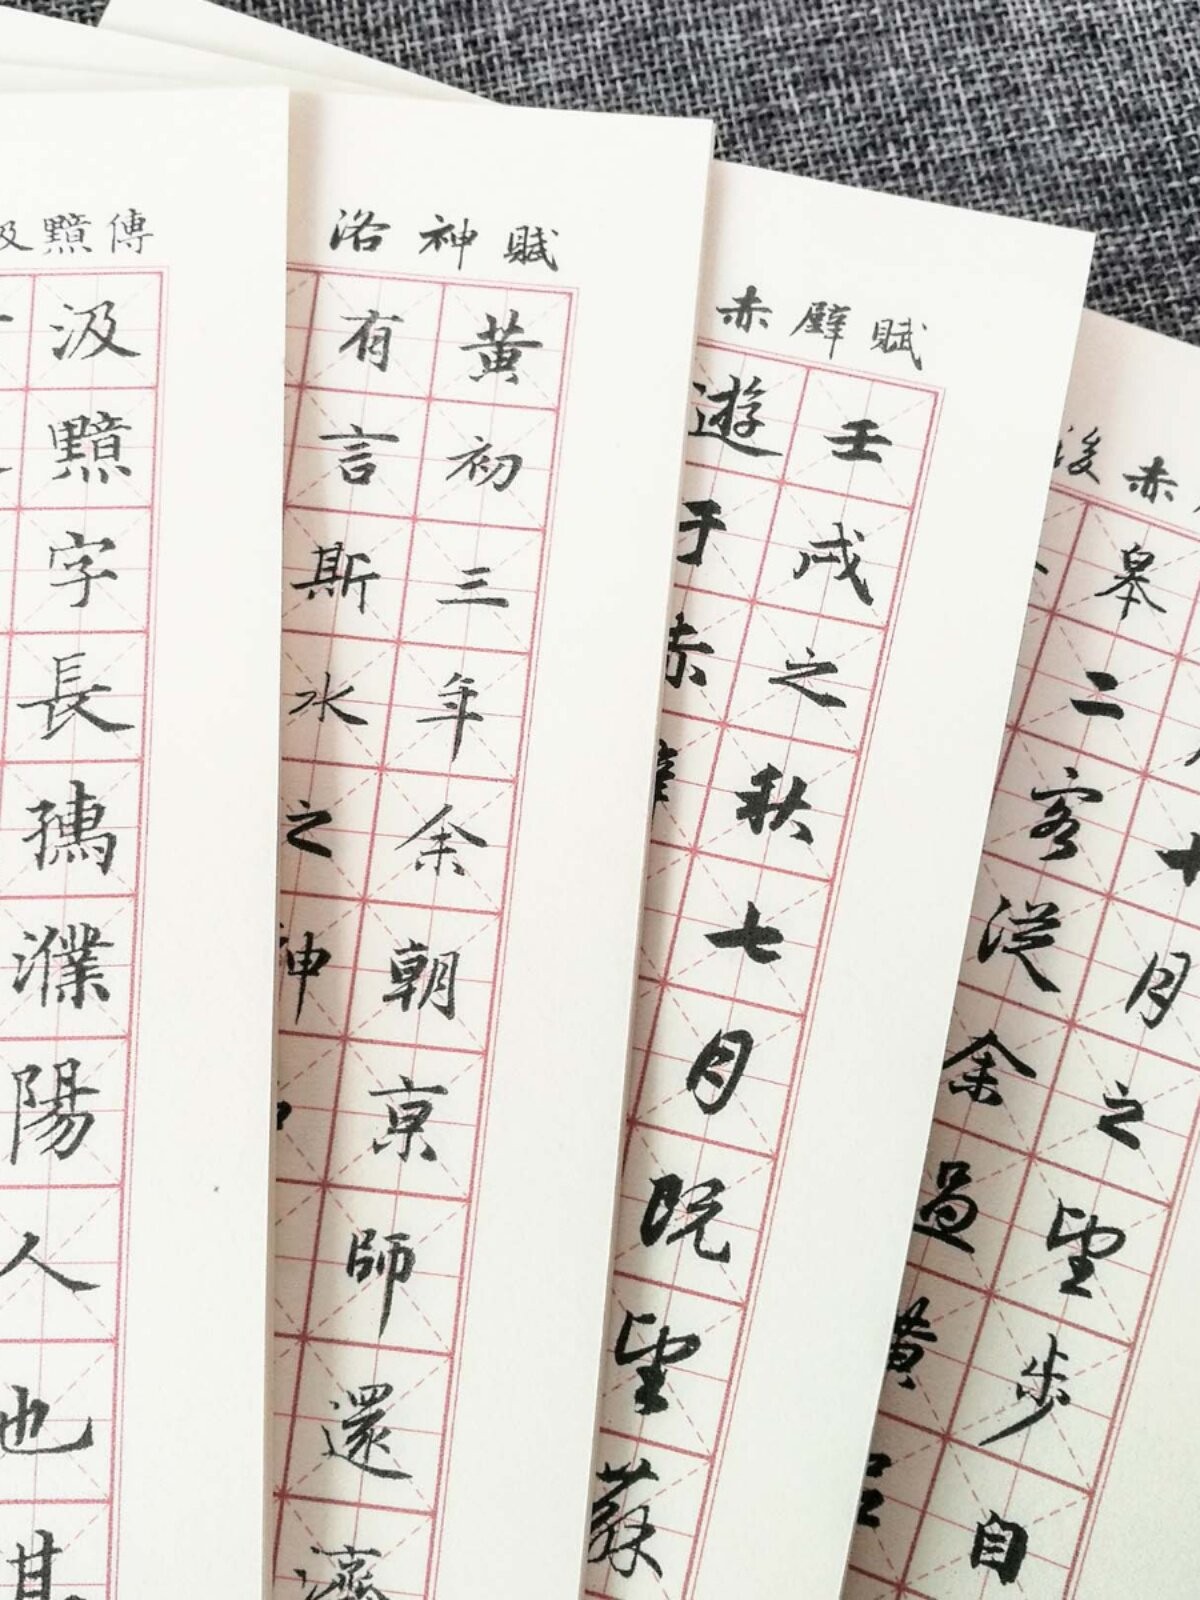 汲黯傳
汲黯字長孺濮陽人也其
洛神賦
黃初三年余朝京師還濟
有言斯水之神
赤壁賦
壬戌之秋七月既望蘇
遊于赤
後赤
十月之望步自
皋二客從余過黃